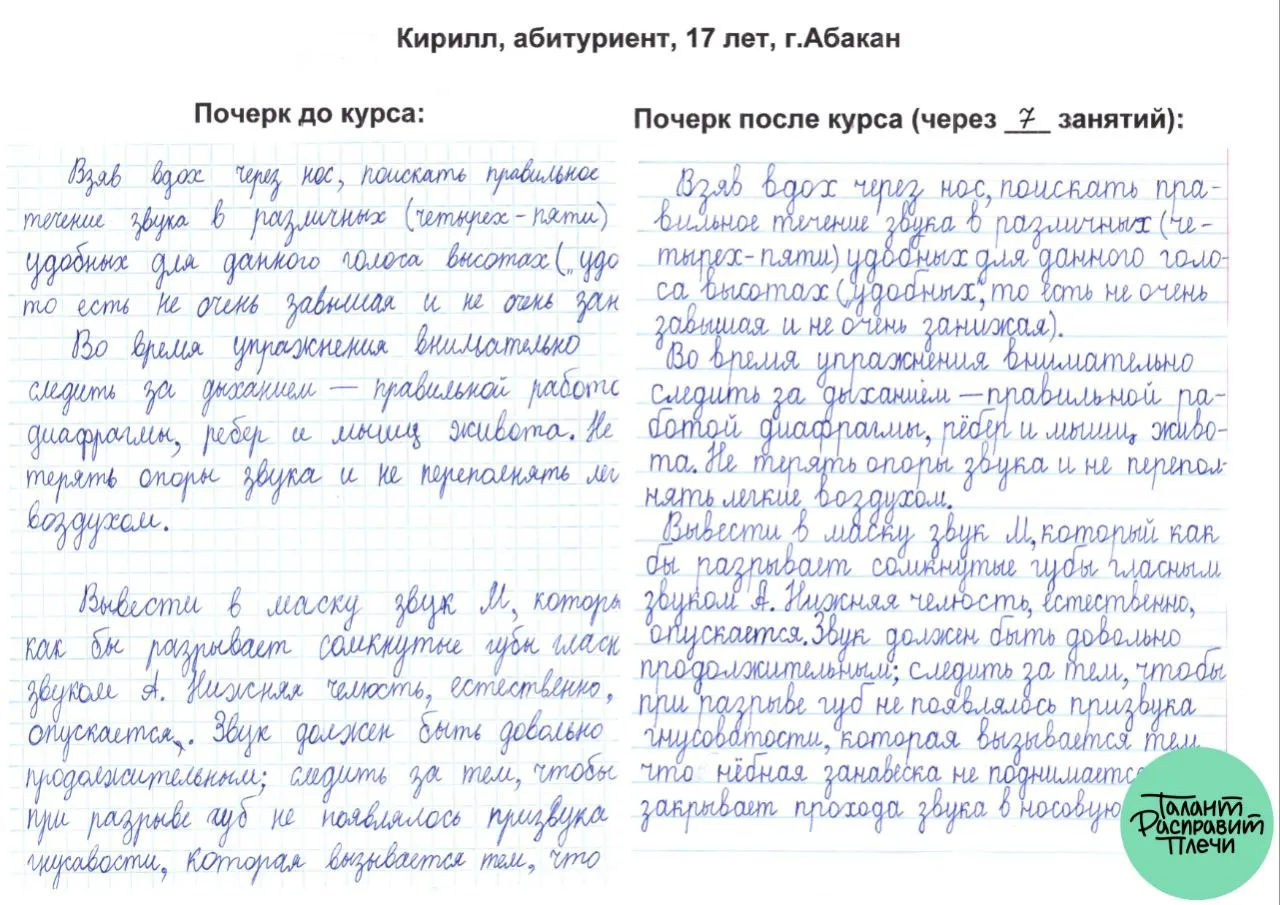 Кирилл, абитуриент, 17 лет, г.Абакан
Почерк до курса:
Взяв вдох через нос, поискать правильное
течение звука в различных (четырех-пяти)
удобных для данного голоса высотах („удо
то есть не очень завышая и не очень зан
Во время упражнения внимательно
следить за дыханием — правильной работо
диафрагмы, ребер и мышц живота. Не
терять опоры звука и не переполнять лег
воздухом.
Вывести в маску звук М, которы
как бы разрывает сомкнутые губы гласн
звуком А. Нижняя челюсть, естественно,
опускается. Звук должен быть довольно
продолжительным; следить за тем, чтобы
при разрыве губ не появлялось призвука
гнусавости, которая вызывается тем, что
Почерк после курса (через 7 занятий):
Взяв вдох через нос, поискать пра-
вильное течение звука в различных (че-
тырех-пяти) удобных для данного голо-
са высотах („удобных“, то есть не очень
завышая и не очень занижая).
Во время упражнения внимательно
следить за дыханием — правильной ра-
ботой диафрагмы, рёбер и мышц живо-
та. Не терять опоры звука и не перепол-
нять легкие воздухом.
Вывести в маску звук М, который как
бы разрывает сомкнутые губы гласным
звуком А. Нижняя челюсть, естественно,
опускается. Звук должен быть довольно
продолжительным; следить за тем, чтобы
при разрыве губ не появлялось призвука
гнусоватости, которая вызывается тем
что нёбная занавеска не поднимаетс
закрывает прохода звука в носовую
Талант
Расправит
Плечи